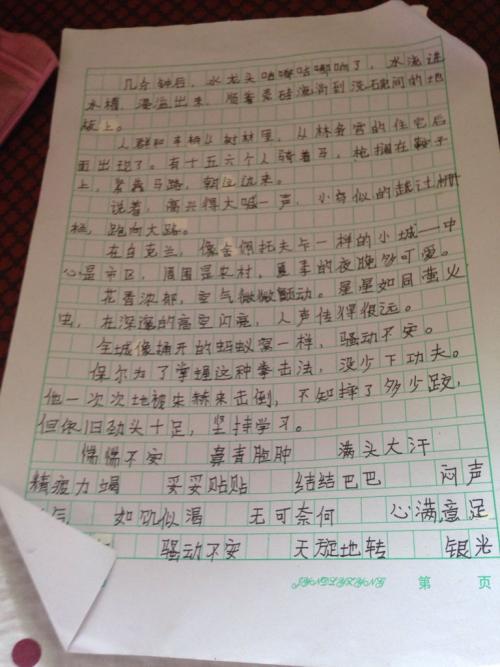 几分钟后，水龙头咕嘟咕嘟响了，水流进
水槽，漫溢出来，顺着瓷砖流淌到洗碗间的地
板上。
人群和车辆从树林里，从林务官的住宅后
面出现了。有十五六个人骑着马，枪横在鞍子
上，紧靠马路，朝这边来。
说着，高兴得大喊一声，小马似的越过栅
栏，跑向大路。
在乌克兰，像舍佩托夫卡一样的小城——中
心是市区，周围是农村，夏季的夜晚多可爱。
花香浓郁，空气微微颤动。星星如同萤火
虫，在深邃的高空闪亮，人声传得很远。
全城像捅开的蚂蚁窝一样，骚动不安。
保尔为了掌握这种拳击法，没少下功夫。
他一次次地被朱赫来击倒，不知摔了多少跤，
但依旧劲头十足，坚持学习。
惴惴不安 鼻青脸肿 满头大汗
精疲力竭 妥妥贴贴 结结巴巴 闷声
气 如饥似渴 无可奈何 心满意足
骚动不安 天旋地转 银光
第 页